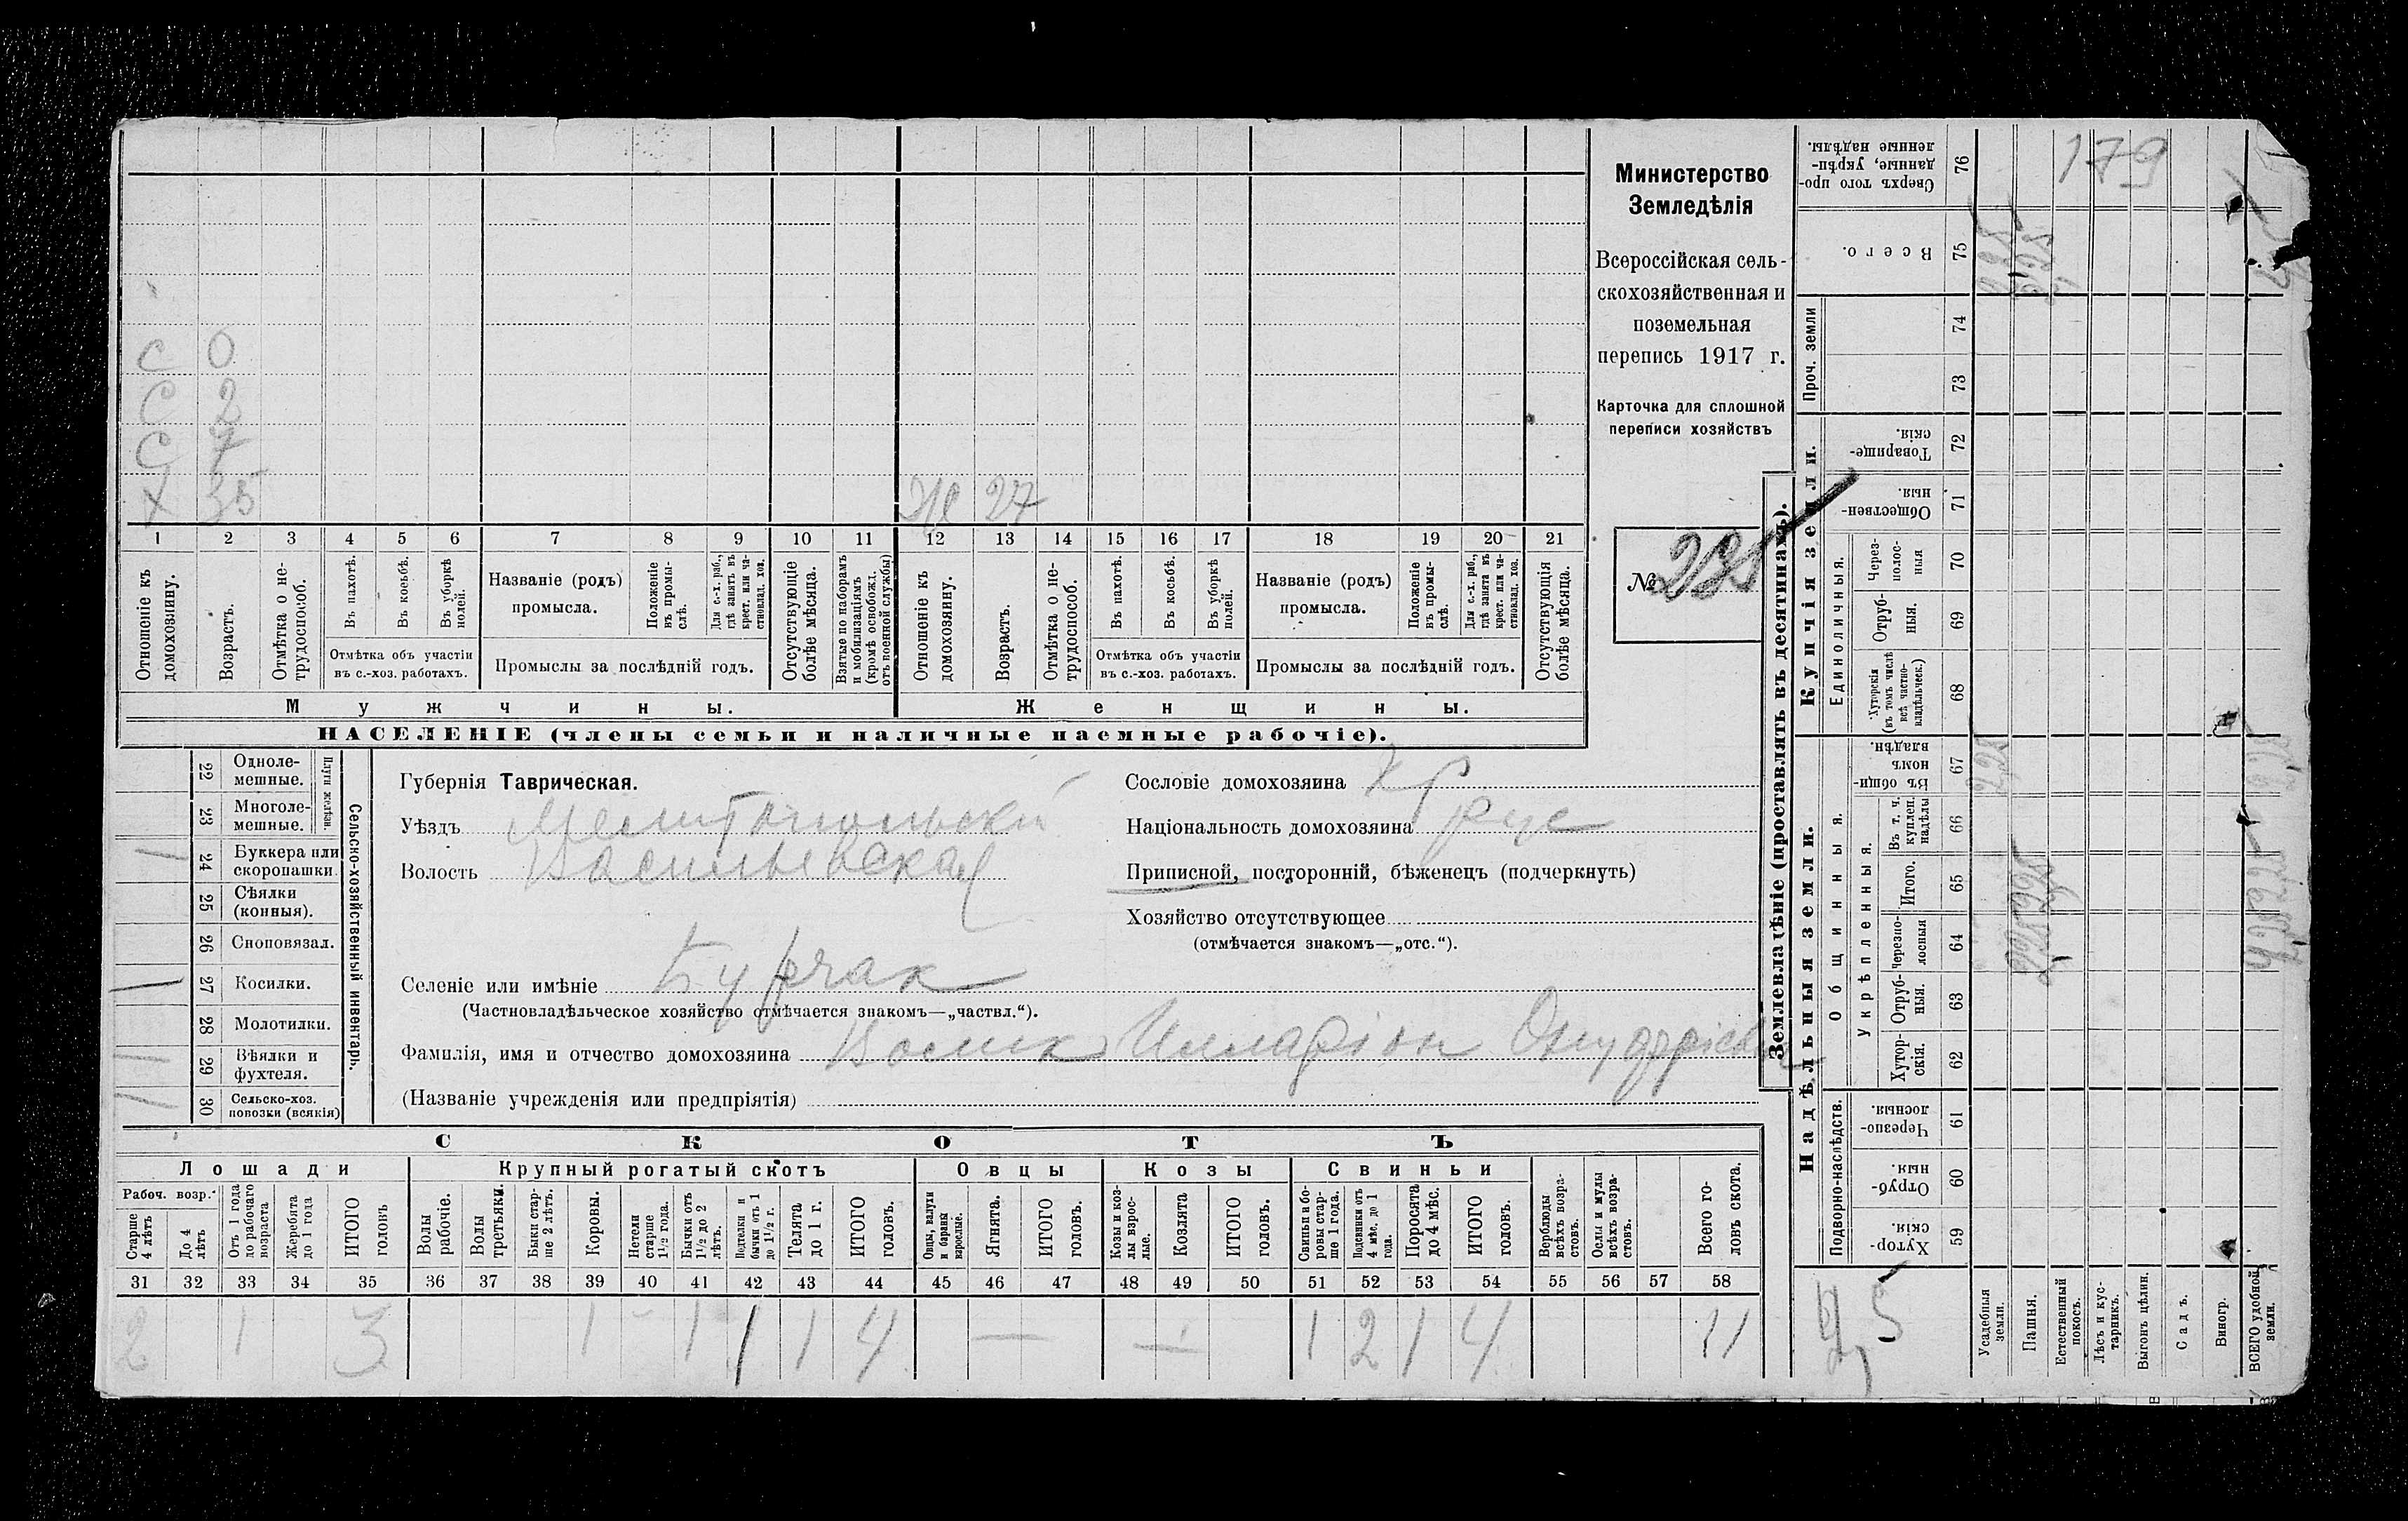 Министерство
Земледѣлія
Всероссійская сель-
скохозяйственная и
поземельная
перепись 1917 г.
Карточка для сплошной
переписи хозяйствъ
№
179
С 0
С 2
С 7
Х 35
Же 27
1 2 3 4 5 6 7 8 9 10 11 12 13 14 15 16 17 18 19 20 21
Отношеніе къ домохозяину.
Возрастъ.
Отмѣтка о не-трудоспособ.
Въ пахотѣ.
Въ косьбѣ.
Въ уборкѣ полей.
Отмѣтка объ участіи
въ с.-хоз. работахъ.
Названіе (родъ)
промысла.
Положеніе въ промы-слѣ.
Для с.-х. раб., гдѣ занятъ въ крест. или ча-стновлад. хоз.
Промыслы за послѣдній годъ.
Отсутствующіе болѣе мѣсяца.
Взятые по наборамъ и мобилизаціямъ (кромѣ освобожд. отъ военной службы)
Отношеніе къ домохозяину.
Возрастъ.
Отмѣтка о не-трудоспособ.
Въ пахотѣ.
Въ косьбѣ.
Въ уборкѣ полей.
Отмѣтка объ участіи
въ с.-хоз. работахъ.
Названіе (родъ)
промысла.
Положеніе въ промы-слѣ.
Для с.-х. раб., гдѣ занята въ крест. или ча-стновлад. хоз.
Промыслы за послѣдній годъ.
Отсутствующія болѣе мѣсяца.
Мужчины.
Женщины.
НАСЕЛЕНІЕ (члены семьи и наличные наемные рабочіе).
Сельско-хозяйственный инвентарь.
Плуги желѣзн.
22 Одноле-мешные.
23 Многоле-мешные.
24 Буккера или скоропашки
25 Сѣялки (конныя).
26 Сноповязал.
27 Косилки.
28 Молотилки.
29 Вѣялки и фухтеля.
30 Сельско-хоз. повозки (всякія)
Губернія Таврическая.
Уѣздъ Мелитопольскій
Волость Васильевская
Селеніе или имѣніе Бурчак
(Частновладѣльческое хозяйство отмѣчается знакомъ—„частвл.“).
Фамилія, имя и отчество домохозяина Волик Илларіон
(Названіе учрежденія или предпріятія)
Сословіе домохозяина Кр
Національность домохозяина рус
Приписной, посторонній, бѣженецъ (подчеркнуть)
Хозяйство отсутствующее
(отмѣчается знакомъ—„отс.“).
СКОТЪ
Лошади
Рабоч. возр.
Старше 4 лѣтъ
До 4 лѣтъ
Отъ 1 года до рабочаго возраста
Жеребята до 1 года
ИТОГО головъ
Крупный рогатый скотъ
Волы рабочіе.
Волы третьяки.
Быки стар-ше 2 лѣтъ.
Коровы.
Нетели старше 1½ года.
Бычки отъ 1½ до 2 лѣтъ.
Подтелки и бычки отъ 1 до 1½ г.
Телята до 1 г.
ИТОГО головъ.
Овцы
Овцы, валухи и бараны взрослые.
Ягнята.
ИТОГО головъ.
Козы
Козы и коз-лы взрос-лые.
Козлята
ИТОГО головъ.
Свиньи
Свиньи и бо-ровы стар-ше 1 года.
Подсвинки отъ 4 мѣс. до 1 года.
Поросята до 4 мѣс.
ИТОГО головъ.
Верблюды всѣхъ возра-стовъ.
Ослы и мулы всѣхъ возра-стовъ.
Всего го-ловъ скота.
31 32 33 34 35 36 37 38 39 40 41 42 43 44 45 46 47 48 49 50 51 52 53 54 55 56 57 58
2 1 3 1 - 1 1 1 4 — — 1 2 1 4 11
Землевладѣніе (проставлять въ десятинахъ).
Купчія земли.
Надѣльныя земли.
Сверхъ того про-данные, укрѣп-ленные надѣлы. 76
Всего. 75
Проч. земли
74
73
Товарище-скія. 72
Обществен-ныя. 71
Единоличныя.
Через-полос-ныя 70
Отруб-ныя. 69
Хуторскія (въ томъ числѣ всѣ частно-владѣльческ.) 68
Общинныя.
Въ общи-номъ владѣн. 67
Укрѣпленныя.
Въ т. ч. куплен. надѣлы 66
Итого. 65
Черезпо-лосныя 64
Отруб-ныя. 63
Хутор-скія. 62
Подворно-наслѣдств.
Черезпо-лосныя. 61
Отруб-ныя. 60
Хутор-скія. 59
Усадебныя земли.
Пашня.
Естественный покосъ.
Лѣсъ и кус-тарникъ.
Выгонъ цѣлин.
Садъ.
Виногр.
ВСЕГО удобной земли.